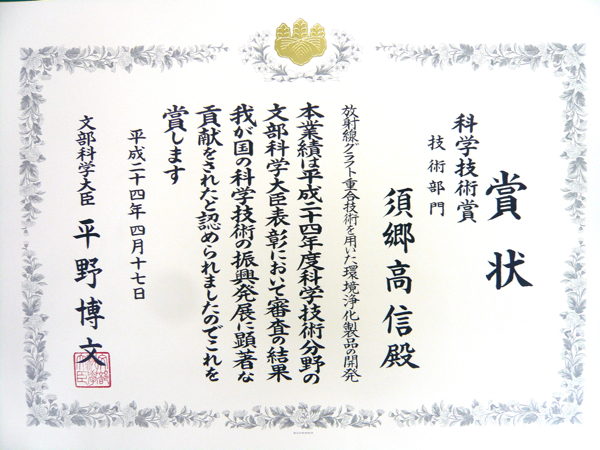 賞状
科学技術賞
技術部門
須郷高信殿
放射線グラフト重合技術を用いた環境浄化製品の開発
本業績は平成二十四年度科学技術分野の
文部科学大臣表彰において審査の結果
我が国の科学技術の振興発展に顕著な
貢献をされたと認められましたのでこれを
賞します
平成二十四年四月十七日
文部科学大臣 平野博文